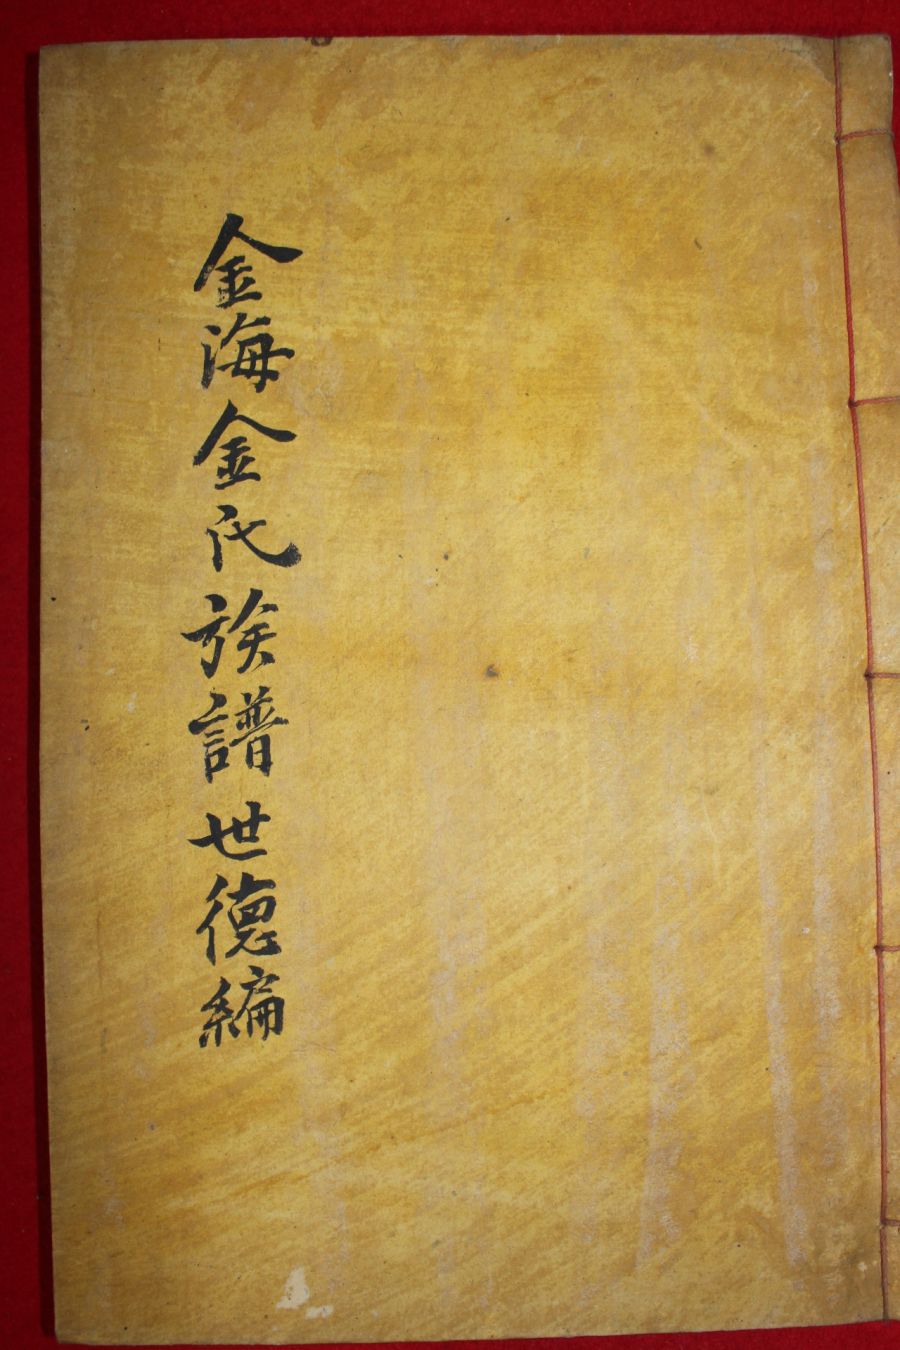 金海金氏族譜世德編